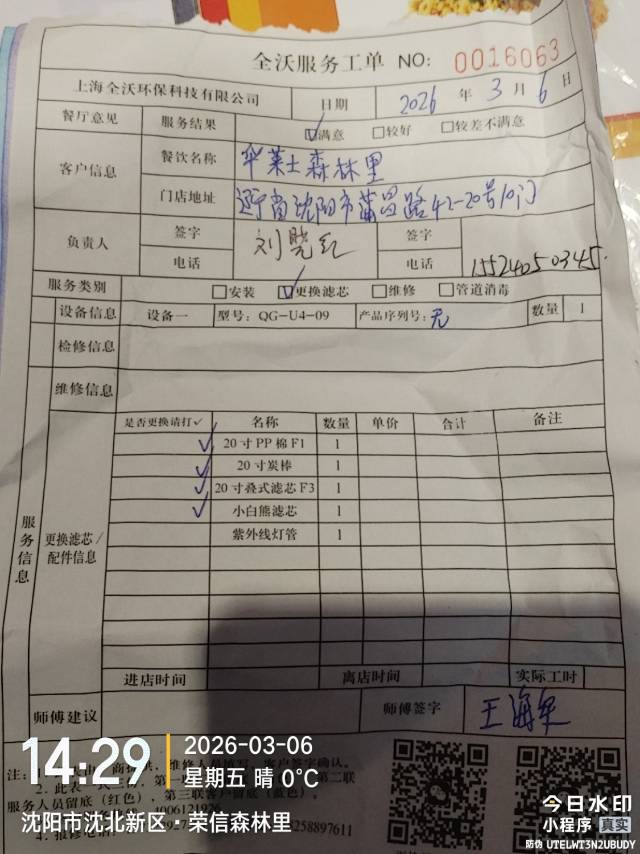 全沃服务工单 NO: 0016063
上海全沃环保科技有限公司 日期 2026 年 3 月 6 日
餐厅意见 服务结果 ☑满意 □较好 □较差不满意
客户信息 餐饮名称 华莱士森林里
门店地址 辽宁省沈阳市蒲昌路42-20号10门
负责人 签字 刘晓红 签字
电话 电话 15524050345
服务类别 □安装 ☑更换滤芯 □维修 □管道消毒
设备信息 设备一 型号: QG-U4-09 产品序列号: 无 数量 1
检修信息
维修信息
服务信息
更换滤芯/配件信息
是否更换请打✓ 名称 数量 单价 合计 备注
✓ 20寸PP棉F1 1
✓ 20寸炭棒 1
✓ 20寸叠式滤芯F3 1
✓ 小白熊滤芯 1
紫外线灯管 1
进店时间 离店时间 实际工时
师傅建议 师傅签字 王海军
注:
客户签字确认。
2. 此表一
第二联
服务人员留底(红色),第三联客户留底(蓝色)。
4006121926
258897611
14:29
2026-03-06
星期五 晴 0°C
沈阳市沈北新区·荣信森林里
今日水印
小程序 真实
防伪 UTELWT3N2UBUDY